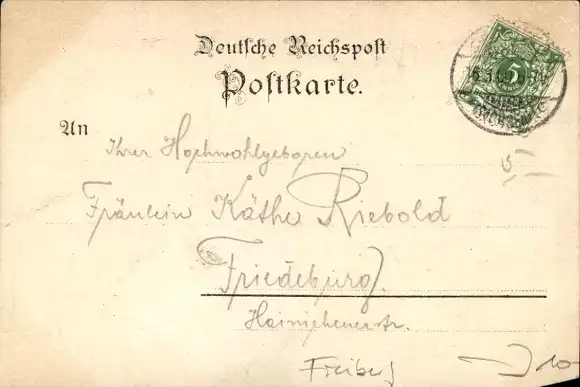 Deutsche Reichspost
Postkarte.
An
Ihrer Hochwohlgeboren
Fräulein Käthe Riebold
Friedeburg.
Hainichenerstr.
Freiberg
5
10